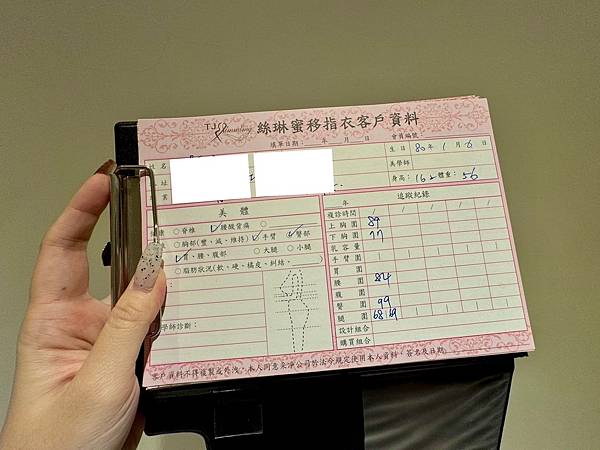 TJ Slimming 絲琳蜜移指衣客戶資料
填單日期： 年 月 會員編號
姓名 生日 80年1月6日
址 美學師
業 身高：162 體重：56
美體 追蹤紀錄
年
健康 ○脊椎 ✓腰酸背痛 ○ 複診時間 / / / / /
○胸部(豐、減、維持) ✓手臂 ✓臀部 上胸圍 89
✓胃、腰、腹部 ○大腿 ○小腿 下胸圍 77
○脂肪狀況(軟、硬、橘皮、糾結、 ) 乳容量
手臂圍
胃圍
腰圍 84
腹圍
學師診斷： 臀圍 99
腿圍 68 69
設計組合
購買組合
客戶資料不得複製或外洩，本人同意采淨公司於法令規定使用本人資料，簽名及日期：